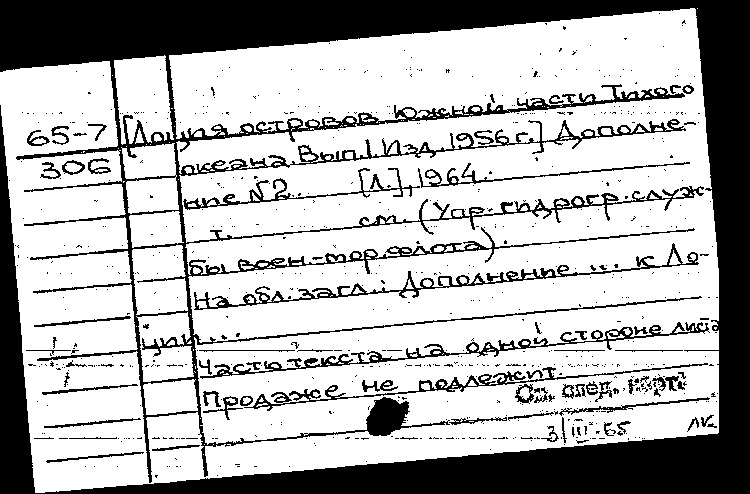 65-7 [Лоция островов Южной части Тихого
306 океана. Вып.1. Изд. 1956 г.] Дополне-
ние №2. [Л.], 1964.
т. см. (Упр. гидрогр. служ-
бы воен.-мор. флота).
На обл. загл.: Дополнение ... к Ло-
ции...
Часть текста на одной стороне листа
Продаже не подлежит.
См. след. карт.
3/III-65